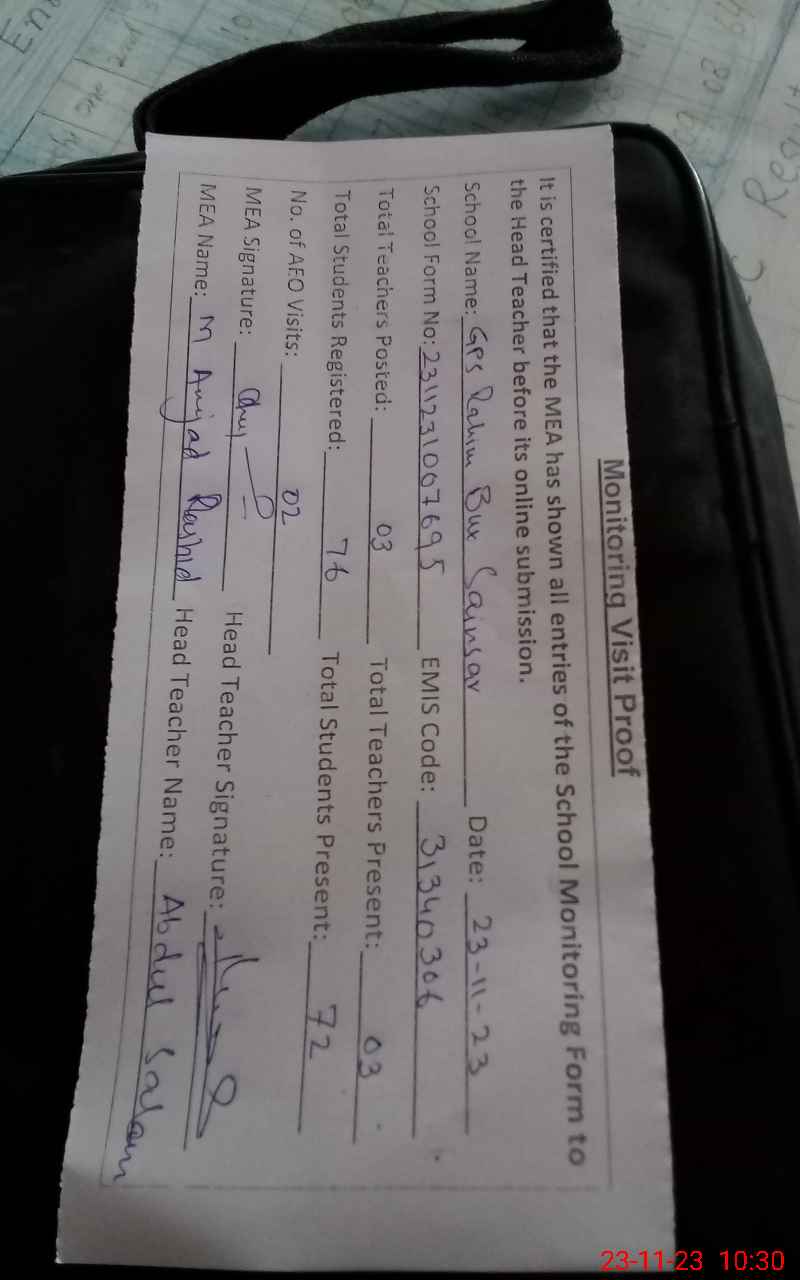 Monitoring Visit Proof
It is certified that the MEA has shown all entries of the School Monitoring Form to
the Head Teacher before its online submission.
School Name: GPS Rahim Bux Sainsar Date: 23-11-23
School Form No: 2311231007695 EMIS Code: 31340306
Total Teachers Posted: 03 Total Teachers Present: 03
Total Students Registered: 76 Total Students Present: 72
No. of AEO Visits: 02
MEA Signature: Head Teacher Signature:
MEA Name: M Amjad Rashid Head Teacher Name: Abdul Salam
23-11-23 10:30